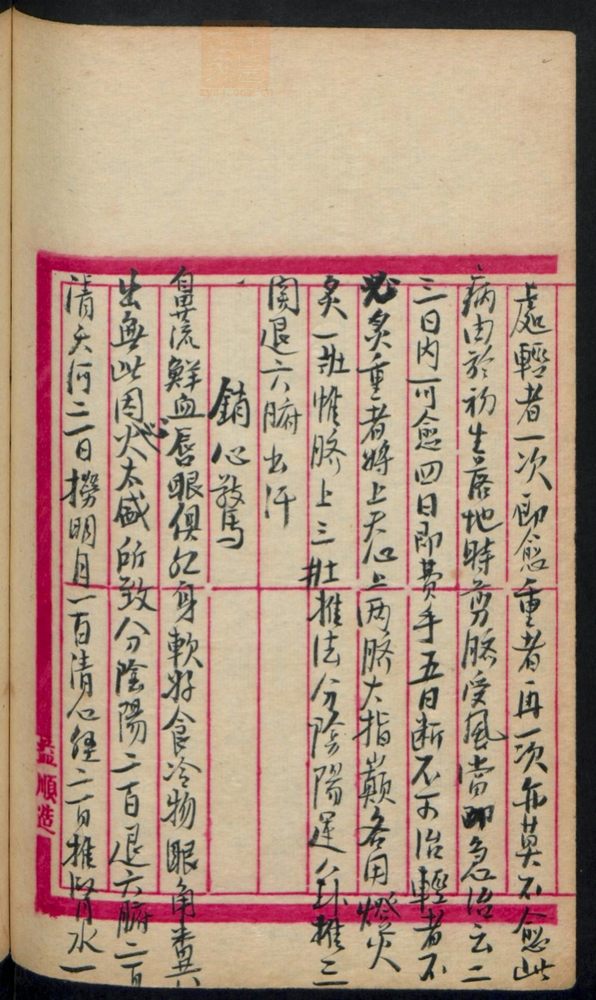 處輕者一次即愈重者再一次無莫不愈此
病由於初生落地時剪臍受風當即急治云二
三日內可愈四日即費手五日斷不可治輕者不
必灸重者將上天心上兩臍大指巔各用燈火
灸一壯惟臍上三壯推法分陰陽運八卦推三
関退六腑出汗
銷心驚
鼻流鮮血唇眼俱紅身軟好食冷物眼角糞
出無此因火太盛所致分陰陽二百退六腑二百
清天河二百撈明月一百清心經二百推腎水一
益順造